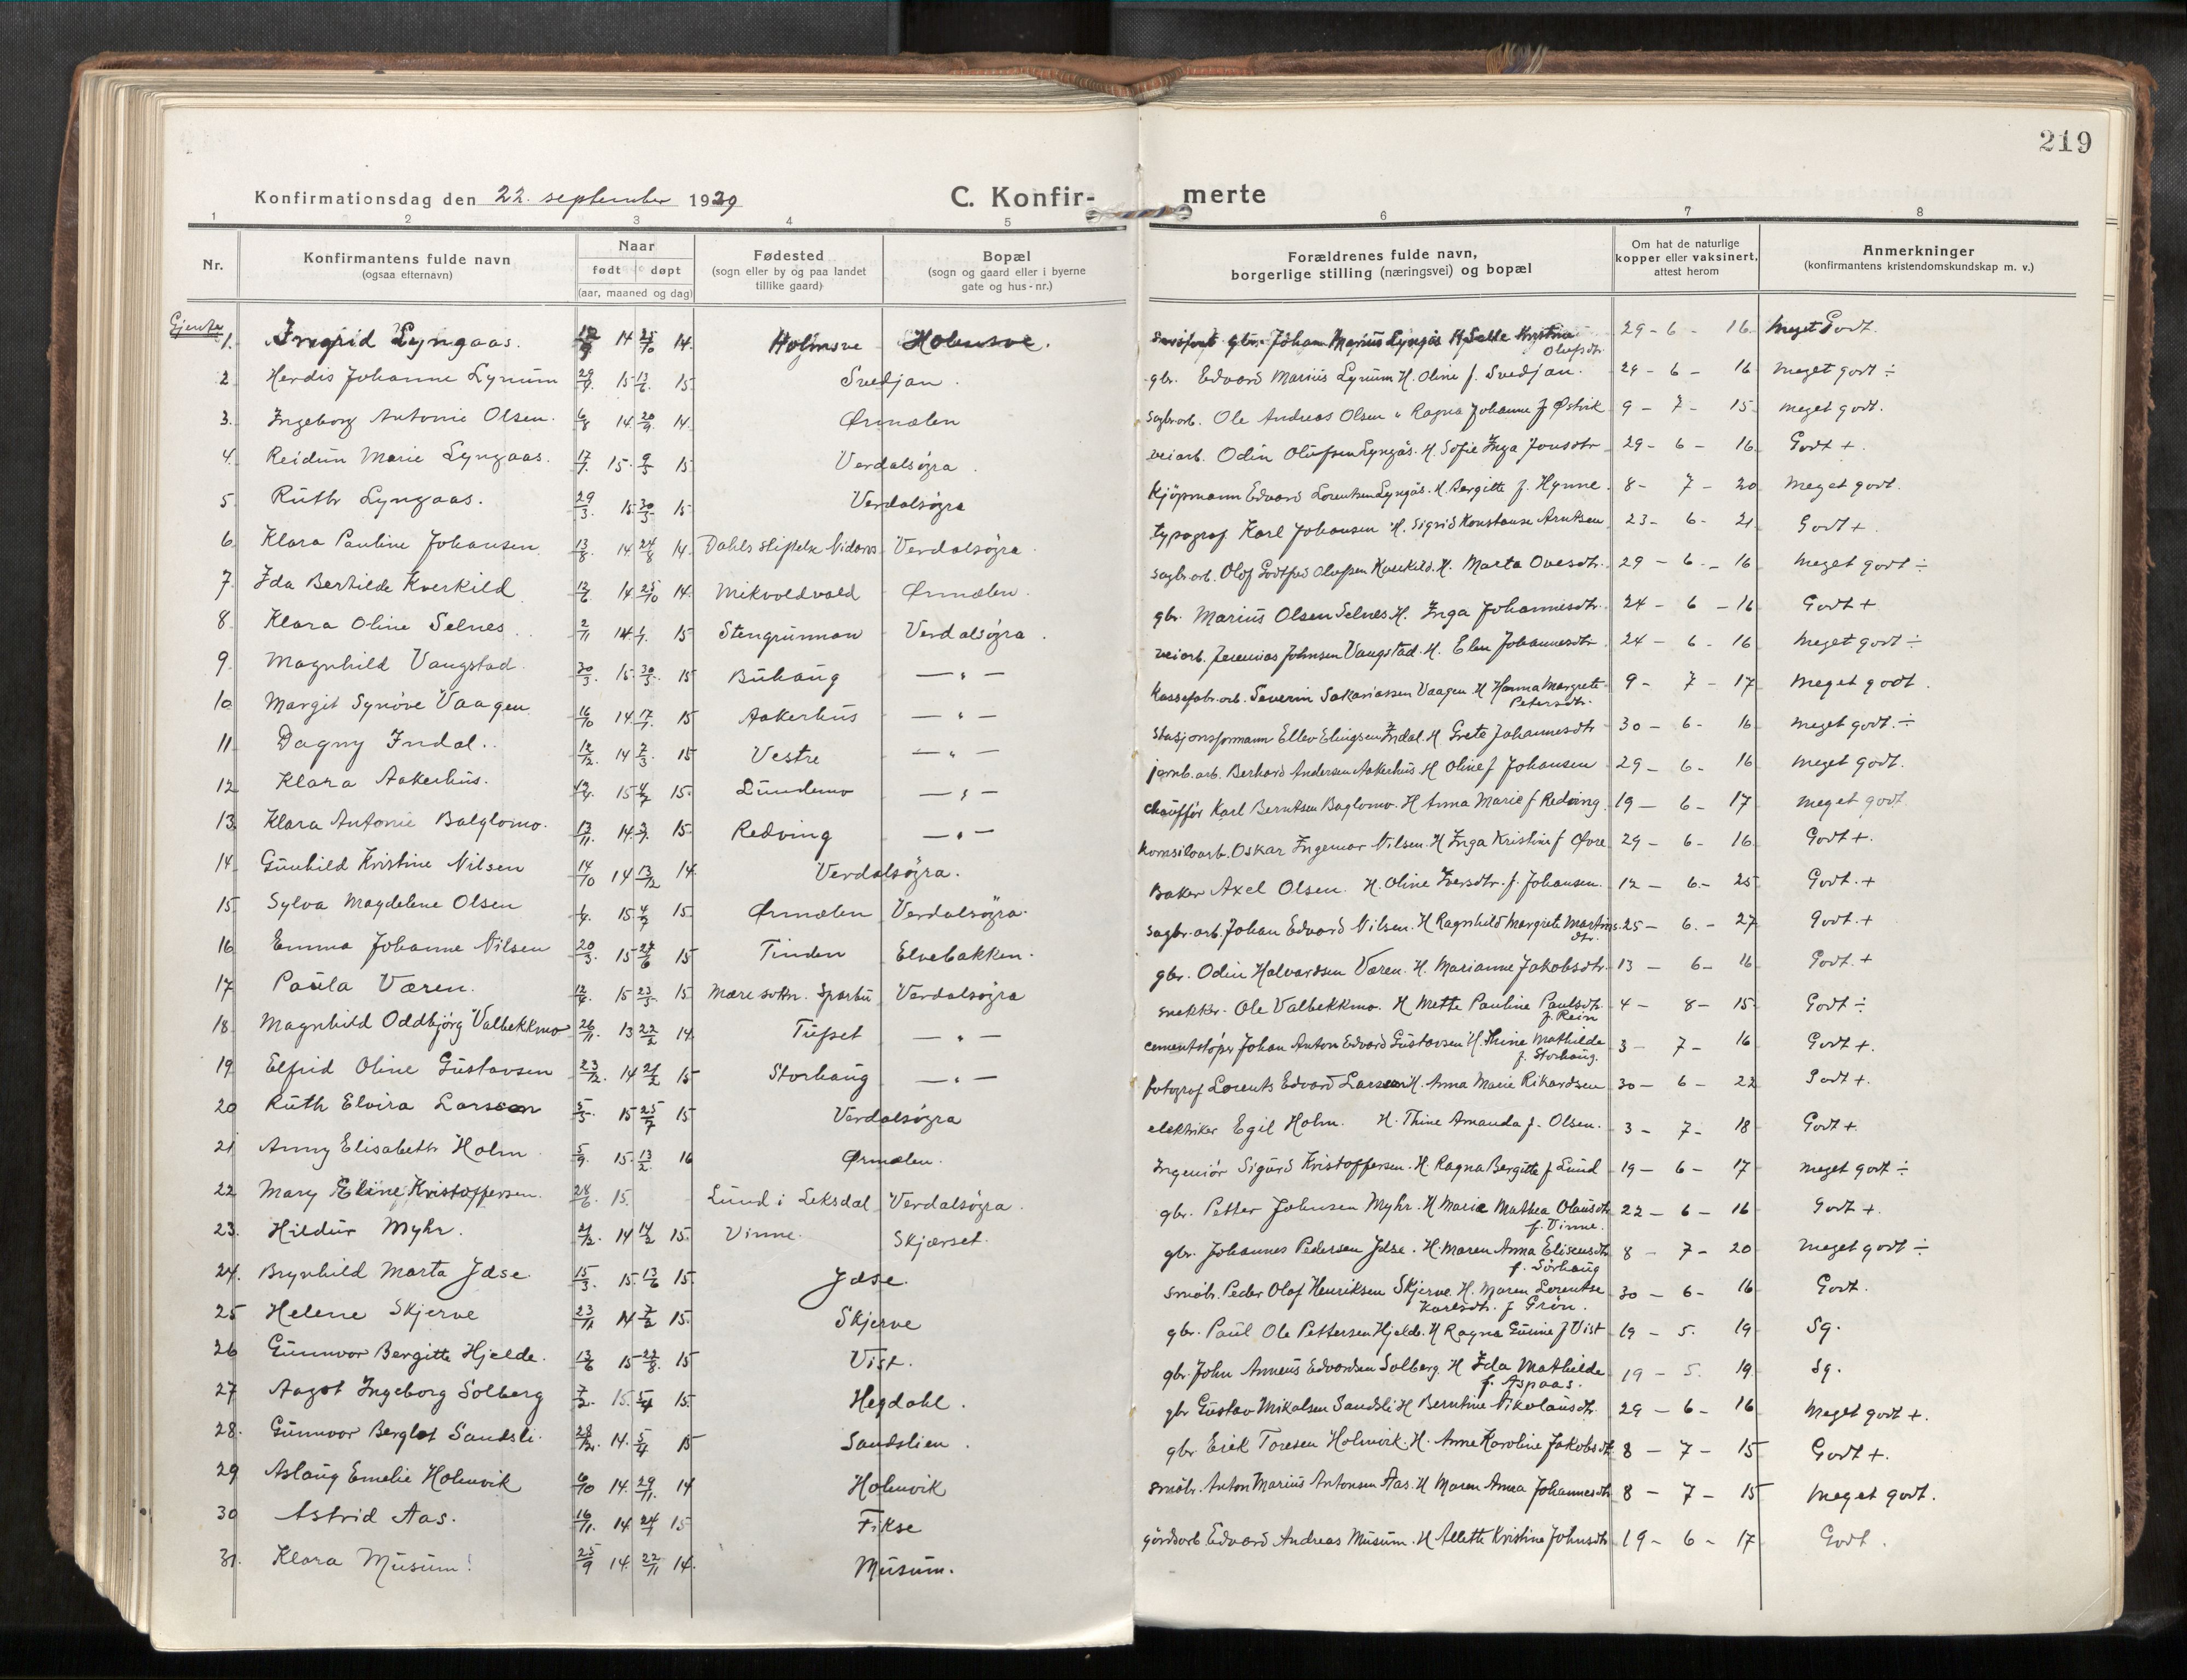 219
Konfirmationsdag den 22. september 1929
C. Konfir-merte
1 2 3 4 5 6 7 8
Nr.
Konfirmantens fulde navn
(ogsaa efternavn)
Naar
født døpt
(aar, maaned og dag)
Fødested
(sogn eller by og paa landet
tillike gaard)
Bopæl
(sogn og gaard eller i byerne
gate og hus-nr.)
Forældrenes fulde navn,
borgerlige stilling (næringsvei) og bopæl
Om hat de naturlige
kopper eller vaksinert,
attest herom
Anmerkninger
(konfirmantens kristendomskundskap m. v.)
Gjenter
1. Ingrid Lyngaas. 14 25/10 14. Holmsve Holmsve. gbr. Johan Marius Lyngås H. Selle Kristina Olufsdtr. 29-6-16 Meget Godt.
2 Herdis Johanne Lynum 15 13/6 15 Svedjan. gbr. Edvard Marius Lynum H. Oline f. Svedjan. 29-6-16 Meget godt ÷
3. Ingeborg Antonie Olsen. 6/8 14. 20/9 14. Ørmælen sagbr.arb. Ole Andreas Olsen " Ragna Johanne f Østvik 9-7-15 Meget godt.
4. Reidun Marie Lyngaas. 15. 9/5 15 Verdalsøgra. veiarb. Odin Olufsen Lyngås. H. Sofie Inga Jonsdtr 29-6-16 Godt +.
5 Ruth Lyngaas. 29/3. 15 30/5 15 Verdalsøgra Kjøpmann Edvard Lorentsen Lyngås. H. Bergitte f. Hynne. 8-7-20 Meget godt.
6. Klara Pauline Johansen 13/8. 14. 24/8 14. Dahls stiftelse Nidaros Verdalsøgra. typograf Karl Johansen H. Sigrid Konstanse Arntsen 23-6-21 Godt +.
7. Ida Bertilde Kverkild 12/6. 14. 25/10 14. Mikvoldvald Ørmælen. sagbr.arb. Olof Godtfred Olufsen Kverkild. H. Marta Ovesdtr. 29-6-16 Meget godt ÷
8. Klara Oline Selnes 2/11 14. 15 Stengrunnan Verdalsøgra. gbr. Marius Olsen Selnes H. Inga Johannesdtr. 24-6-16 Godt +
9. Magnhild Vangstad 30/3. 15. 30/5. 15 Buhaug —"— veiarb. Jeremias Johnsen Vangstad. H. Elen Johannesdtr 24-6-16 Meget godt ÷
10 Margit Synøve Vaagen. 16/10 14. 17/1. 15 Aakerhus —"— kassefabr.arb. Severin Sakariassen Vaagen H Hanna Margrete Petersdtr. 9-7-17 Meget godt.
11 Dagny Indal. 12/12. 14 7/3. 15 Vestre —"— Stasjonsformann Ellev Elingsen Indal. H Grete Johannesdtr 30-6-16 Meget godt. ÷
12 Klara Aakerhus. 15 4/7 15. Lundemo —"— jernb.arb. Berhard Andersen Aakerhus. H Oline f Johansen 29-6-16 Meget godt.
13. Klara Antonie Balglomo. 13/11. 14. 15 Redving —"— chauffør Karl Berntsen Baglomo. H Anna Marie f Redving. 19-6-17 Meget godt
14. Gunhild Kristine Nilsen 14/10 14 13/12 14. Verdalsøgra. kornsiloarb. Oskar Ingemar Nilsen. H Inga Kristine f Øvre 29-6-16 Godt +.
15 Sylva Magdelene Olsen 15 4/7 15. Ørmælen Verdalsøgra. Baker Axel Olsen. H. Oline Iversdtr. f. Johansen. 12-6-25 Godt. +
16. Emma Johanne Nilsen 20/3. 15 27/6 15 Tinden Elvebakken. sagbr.arb. Johan Edvard Nilsen. H Ragnhild Margrete Martinsdtr. 25-6-27 Godt. +
17 Paula Væren. 12/4. 15 23/5. 15 Mære sokn. Sparbu Verdalsøgra gbr. Odin Halvardsen Væren. H. Marianne Jakobsdtr. 13-6-16 Godt. +
18. Magnhild Oddbjörg Valbekkmo 26/11. 13 22/2 14. Tufset —"— snekker. Ole Valbekkmo. H Mette Pauline Paulsdt. f. Rein 4-8-15 Godt ÷
19 Elfrid Oline Gustavsen 23/12. 14 21/2 15 Storhaug —"— cementstøper Johan Anton Edvard Gustavsen H. Thine Mathilde f. Storhaug. 3-7-16 Godt +.
20 Ruth Elvira Larssen 5/5. 15 25/7 15 Verdalsøgra fotograf Lorents Edvard Larssen H. Anna Marie Rikardsen 30-6-22 Godt +.
21 Anny Elisabeth Holm 5/9. 15. 13/2. 16 Ørmælen. elektriker Egil Holm. H. Thine Amanda f. Olsen. 3-7-18 Godt +.
22 Mary Eline Kristoffersen. 28/6. 15. Lund i Leksdal Verdalsøgra. Ingeniør Sigurd Kristoffersen. H. Ragna Bergitte f Lund 19-6-17 Meget godt ÷
23. Hildur Myhr. 14 14/2 15. Vinne. Skjørset. gbr. Petter Johnsen Myhr. H Marie Mathea Olausdtr f. Vinne. 22-6-16 Godt +.
24. Brynhild Marta Jdse 15/3. 15. 13/6 15. Jdse. gbr. Johannes Pedersen Jdse. H. Maren Anna Elisensdtr f. Sörhaug 8-7-20 Meget godt ÷
25 Helene Skjerve 23/11 14 7/2 15. Skjerve småbr. Peder Olaf Henriksen Skjerve. H. Maren Lorentse Karlsdtr. f Grön. 30-6-16 Godt.
26 Gunnvor Bergitte Hjelde. 13/6 15 22/8. 15 Vist. gbr. Paul Ole Pettersen Hjelde. H Ragna Gurine f Vist 19-5.19 Sg.
27 Aagot Ingeborg Solberg 7/2. 15. 5/4 15. Hegdahl. gbr. John Anneus Edvardsen Solberg. H Ida Mathilde f. Aspaas. 19-5.19 Sg.
28. Gunnvor Berglot Sandsli. 14. 5/4 15 Sandslien. gbr Gustav Mikalsen Sandsli H Berntine Nikolausdtr. 29-6-16 Meget godt +.
29 Aslaug Emelie Holmvik 6/10 14. 29/11. 14 Holmvik gbr. Erik Toresen Holmvik. H. Anne Karoline Jakobsdt 8-7-15 Godt +.
30 Astrid Aas. 16/11. 14 15 Fikse småbr. Anton Marius Antonsen Aas. H Maren Anna Johannesdtr 8-7-15 Meget godt.
31. Klara Musum. 25/9 14. 22/11 14. Musum. gårdsarb Edvard Andreas Musum. H Allette Kristine Johnsdtr 19-6-17 Godt.